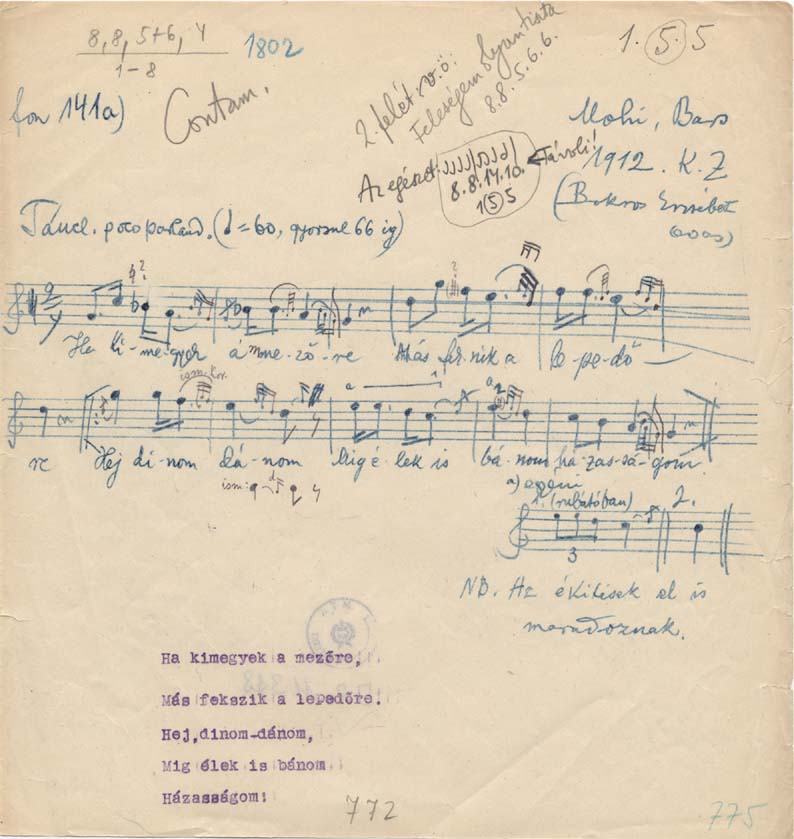 8, 8, 5+6, 4
1-8
1802
1. 5. 5
fon 141a)
Contam.
2. felét. v.ö:
Feleségem olyan tiszta
8. 8. 5. 6. 6.
Az egészet
8. 8. 14. 10.
1 5 5
Távoli!
Mohi, Bars
1912. K. Z
(Bokros Erzsébet
Táncl. poco parland. (♩=60, gyorsul 66 ig)
Ha ki-me-gyek a me-ző-re Más fek-szik a le-pe-dő
re Hej di-nom dá-nom Mig é-lek is bá-nom há-zas-sá-gom
ism:
a) egyéni
1. (rubátóban) 2.
3
NB. Az ékitések el is
maradoznak.
Ha kimegyek a mezőre,
Más fekszik a lepedőre.
Hej,dinom-dánom,
Mig élek is bánom
Házasságom:
772
775